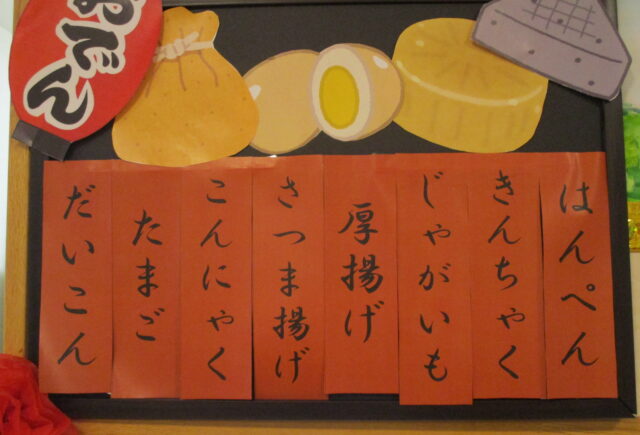 おでん
はんぺん
きんちゃく
じゃがいも
厚揚げ
さつま揚げ
こんにゃく
たまご
だいこん